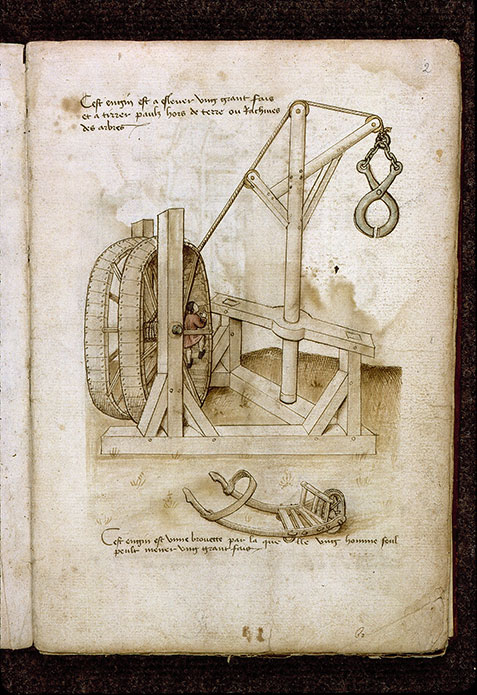 2
Cest engin est a eslever vng grant fais
et a tirrer paulz hors de terre ou Rachines
des arbres
Cest engin est vnne brouette par la quelle vng homme seul
peult mener vng grant fais